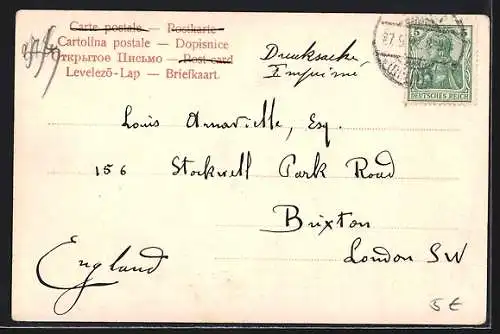 Carte postale — Postkarte
Cartolina postale — Dopisnice
Открытое Письмо — Post card
Levelező-Lap — Briefkaart.
Drucksache
Imprimé
5
DEUTSCHES REICH
Louis Arnavielle, Esq.
156 Stockwell Park Road
Brixton
London SW
England
5 €